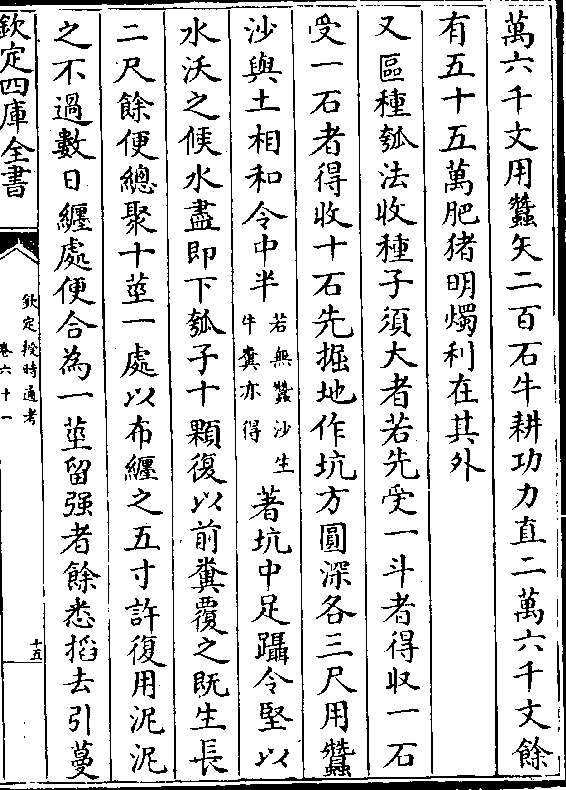 萬六千文用蠶矢二百石牛耕功力直二萬六千文餘
有五十五萬肥猪明燭利在其外
又區種瓠法收種子須大者若先受一斗者得收一石
受一石者得收十石先掘地作坑方圓深各三尺用蠶
沙與土相和令中半若無蠶沙生牛糞亦得著坑中足躡令堅以
水沃之候水盡即下瓠子十顆復以前糞覆之既生長
二尺餘便總聚十莖一處以布纏之五寸許復用泥泥
之不過數日纏處便合為一莖留强者餘悉掐去引蔓
欽定四庫全書
欽定授時通考
卷六十一
十五